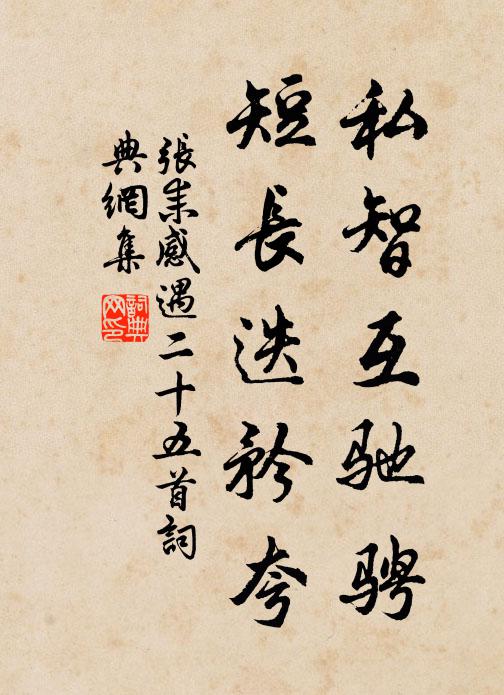 私智互驰骋
短長迭矜夸
張耒感遇二十五首詞
典網集
詞典
网印